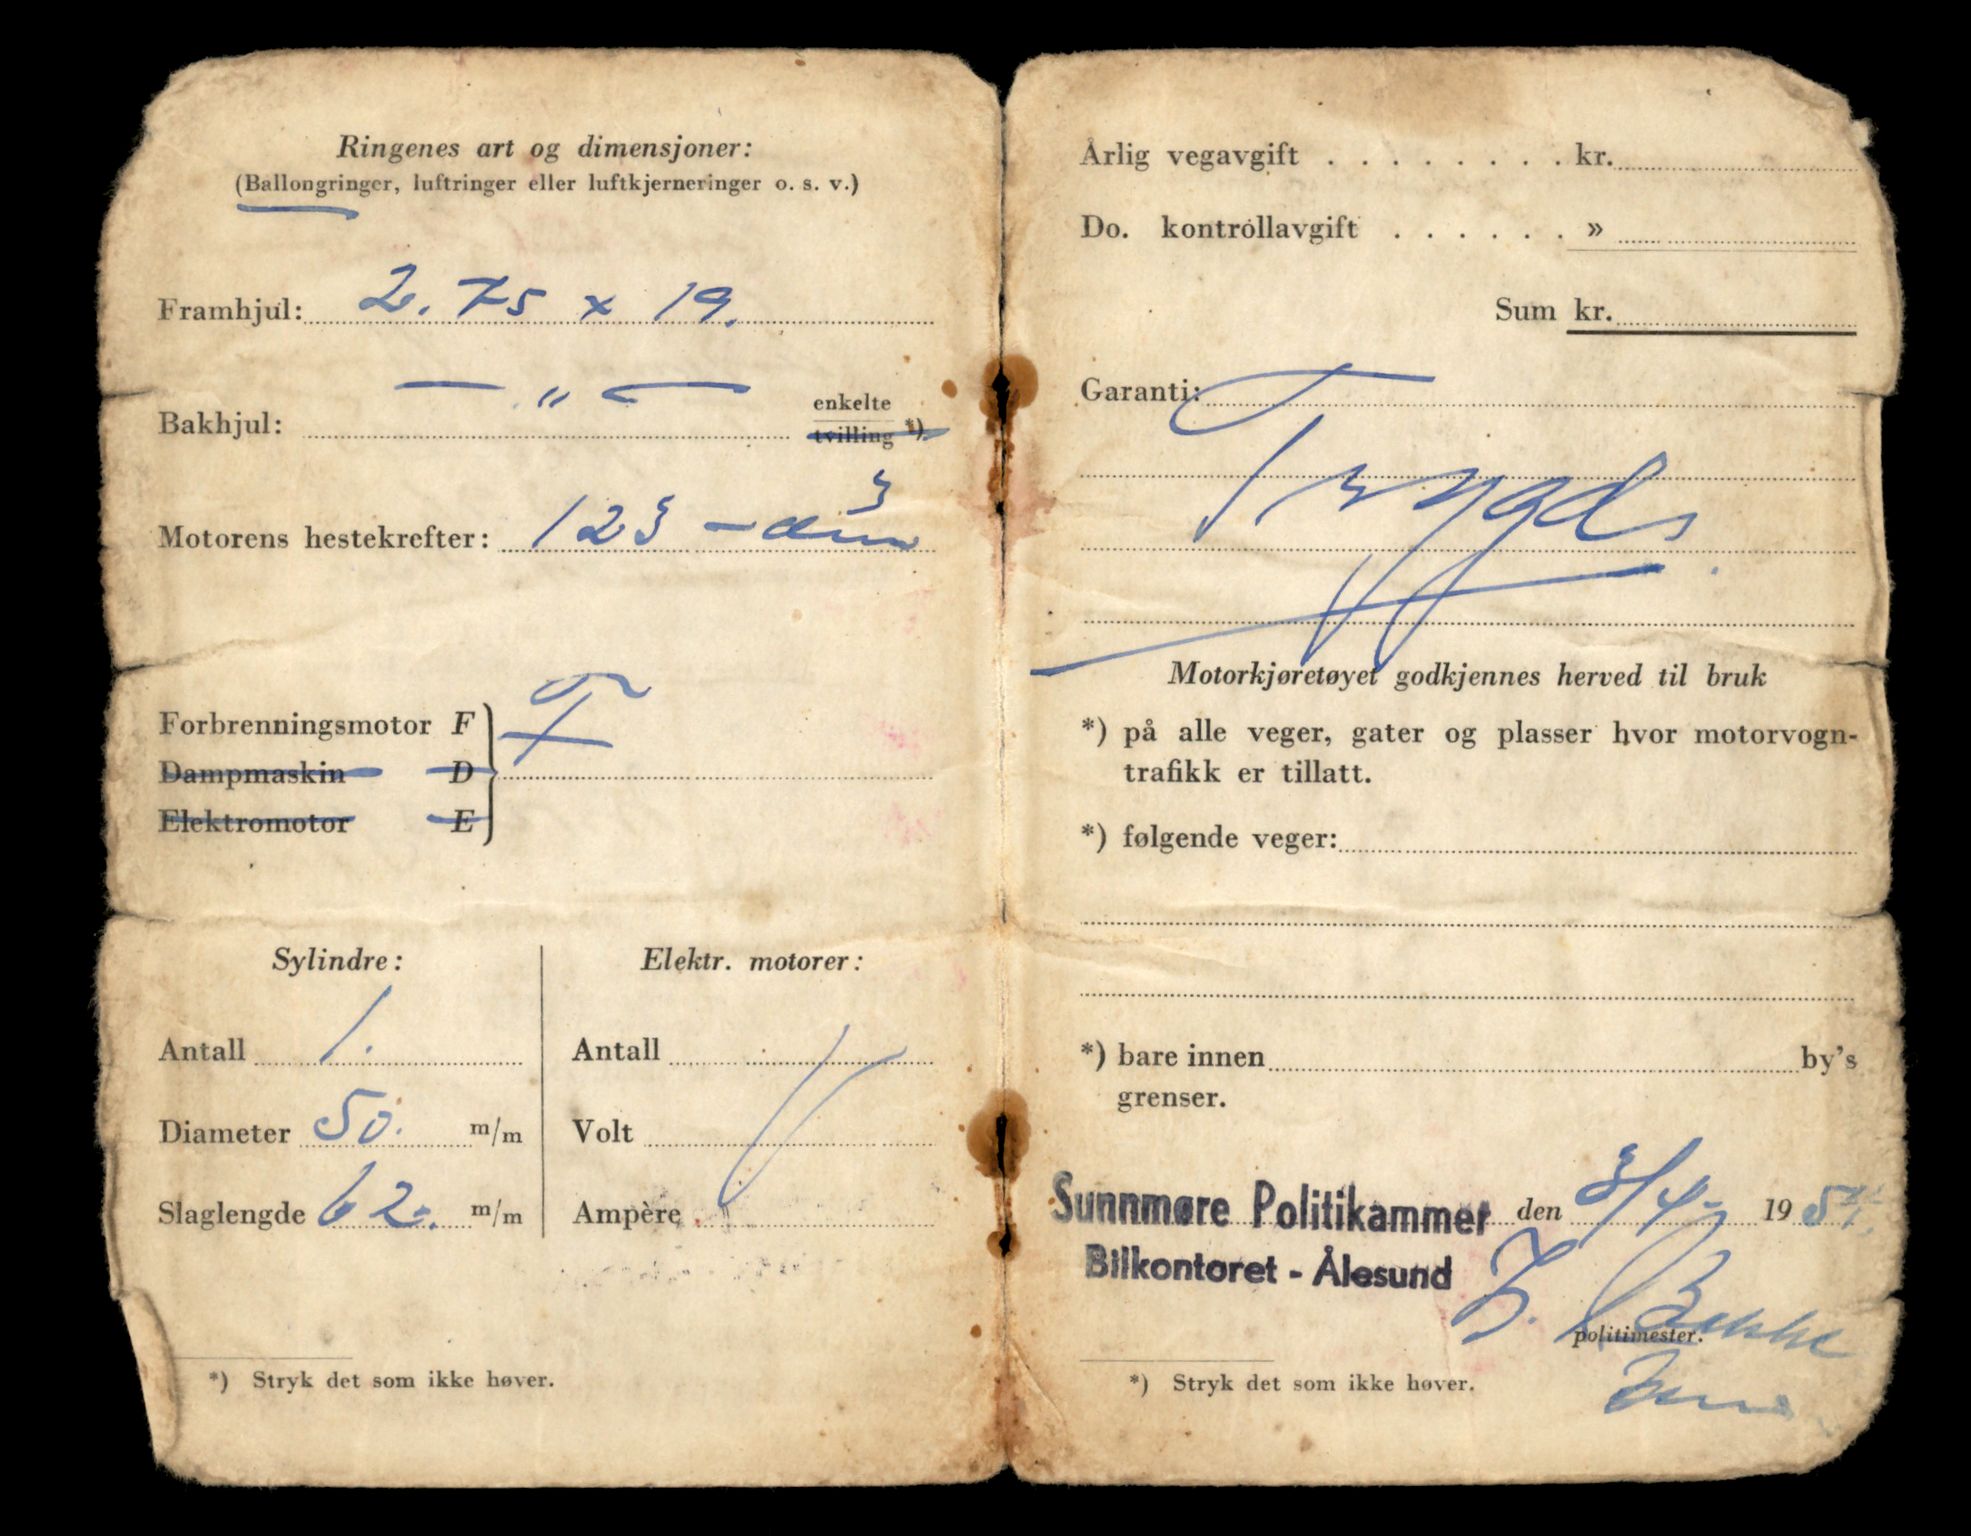 Ringenes art og dimensjoner:
(Ballongringer, luftringer eller luftkjerneringer o. s. v.)
Framhjul: 2.75 x 19.
Bakhjul: — „ — enkelte
tvilling *)
Motorens hestekrefter: 123 -
Forbrenningsmotor F
F
Dampmaskin D
Elektromotor E
Sylindre:
Antall 1.
Diameter 50. m/m
Slaglengde 62. m/m
Elektr. motorer:
Antall
Volt
Ampère
*) Stryk det som ikke høver.
Årlig vegavgift . . . . . . . . kr.
Do. kontrollavgift . . . . . . »
Sum kr.
Garanti:
Motorkjøretøyet godkjennes herved til bruk
*) på alle veger, gater og plasser hvor motorvogn-
trafikk er tillatt.
*) følgende veger:
*) bare innen by's
grenser.
Sunnmøre Politikammer den 3/4- 19
Bilkontoret - Ålesund
politimester.
*) Stryk det som ikke høver.